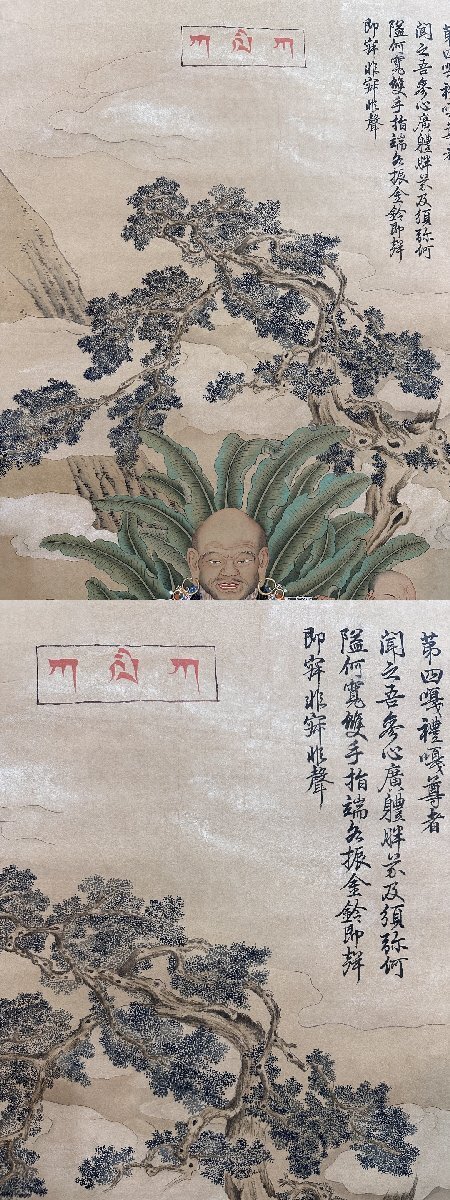 ཀ ལི ཀ
第四嘎禮嘎尊者
聞之吾參心廣體胖芥及須弥何
隘何寬雙手指端各振金鈴即聲
即寂非寂非聲
ཀ ལི ཀ
第四嘎禮嘎尊者
聞之吾參心廣體胖芥及須弥何
隘何寬雙手指端各振金鈴即聲
即寂非寂非聲